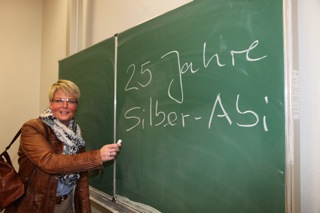 25 Jahre
Silber-Abi